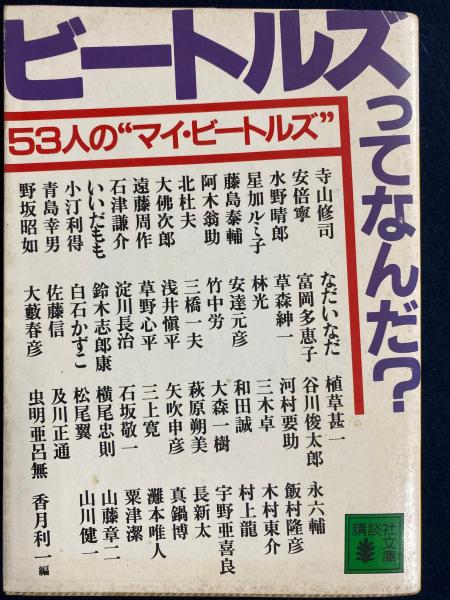 ビートルズってなんだ?
53人の“マイ・ビートルズ”
寺山修司
安倍寧
水野晴郎
星加ルミ子
藤島泰輔
阿木翁助
北杜夫
大佛次郎
遠藤周作
石津謙介
いいだもも
小汀利得
青島幸男
野坂昭如
なだいなだ
富岡多恵子
草森紳一
林光
安達元彦
竹中労
三橋一夫
浅井愼平
草野心平
淀川長治
鈴木志郎康
白石かずこ
佐藤信
大藪春彦
植草甚一
谷川俊太郎
河村要助
三木卓
和田誠
大森一樹
萩原朔美
矢吹申彦
三上寛
石坂敬一
横尾忠則
松尾翼
及川正通
虫明亜呂無
永六輔
飯村隆彦
木村東介
村上龍
宇野亜喜良
長新太
真鍋博
灘本唯人
粟津潔
山藤章二
山川健一
香月利一 編
講談社
文庫